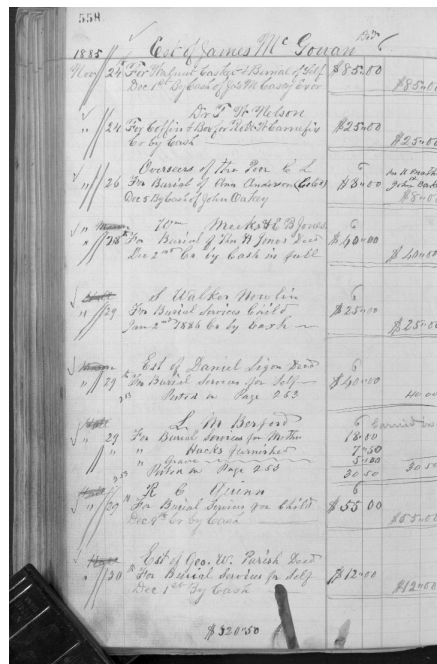 558
1885 Est of James Mc Gowan
Nov 24 For Walnut Casket & Burial of Self $85.00
Dec 1st By Cash of Jas M Casey Exor $85.00
Dr T W Nelson
" 24 For Coffin & Box for $25.00
Cr by Cash $25.00
Overseers of the Poor C L 6
" 26 For Burial of Ann Anderson (Cold) $8.00
Dec 5 By Cash of John Oakey $8.00
Wm Meeks & L B Jones 6
" 28 For Burial of Thos H Jones Decd $40.00
Dec 2nd Cr by Cash in full $40.00
S Walker Nowlin 6
" 29 For Burial Services Child $25.00
Jan 2nd 1886 Cr by Cash $25.00
Est of Daniel Ligon Decd 6
" 29 For Burial Services for Self $40.00
253 Posted on Page 253 40.00
L. M. Berford 6
" 29 For Burial Services for Mother 18.00
" Hacks furnished 7.50
" Grave 5.00
253 Posted on Page 253 30.50 30.50
R C Guinn 6
" 29 For Burial Services for Child $55.00
Dec 9th Cr by Cash $55.00
Est of Geo. W. Parish Decd
" 30 For Burial Services for Self $12.00
Dec 1st By Cash $12.00
$320.50